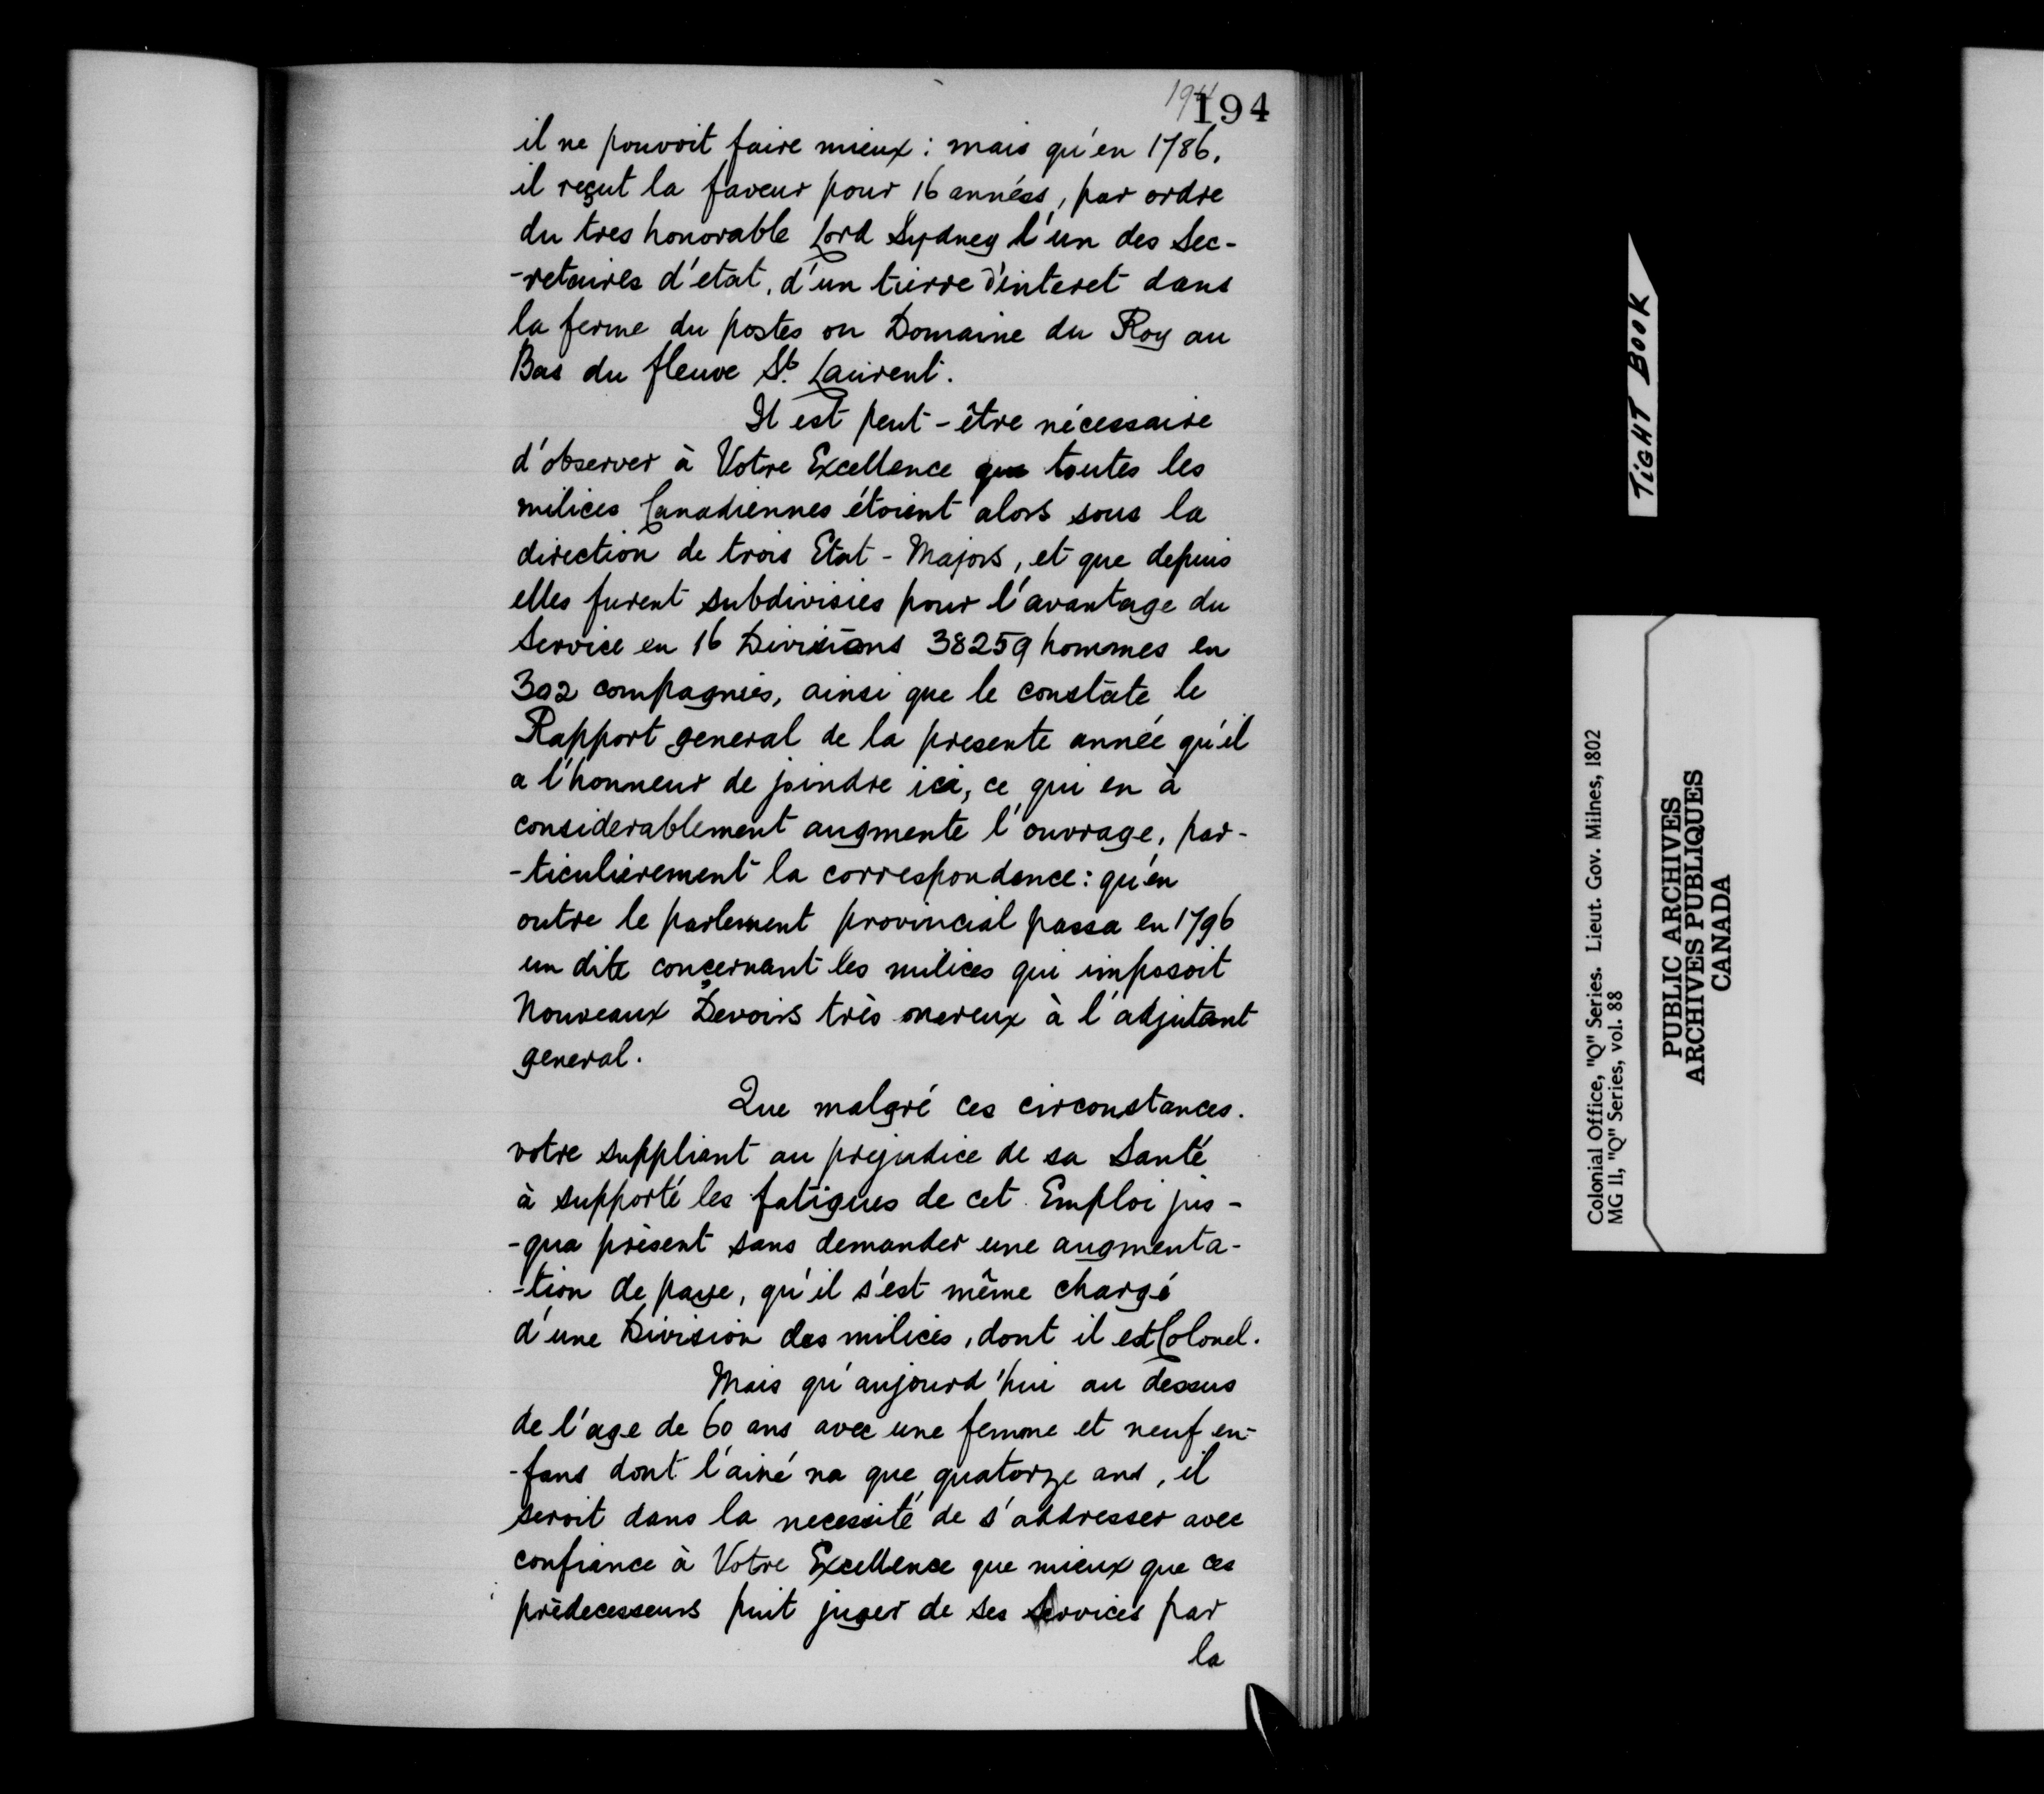 194
194
il ne pouvoit faire mieux : mais qu'en 1786,
il reçut la faveur pour 16 années, par ordre
du tres honorable Lord Sydney l'un des Sec-
-retaires d'etat, d'un tierre d'interet dans
la ferme du postes ou Domaine du Roy au
Bas du fleuve St. Laurent.
Il est peut-être nécessaire
d'observer à Votre Excellence que toutes les
milices Canadiennes étoient alors sous la
direction de trois Etat-Majors, et que depuis
elles furent subdivisies pour l'avantage du
Service en 16 Divisions 38259 hommes en
302 compagnies, ainsi que le constate le
Rapport general de la presente année qu'il
a l'honneur de joindre ici, ce qui en à
considerablement augmenté l'ouvrage, par-
-ticulièrement la correspondence : qu'en
outre le parlement provincial passa en 1796
un dite concernant les milices qui imposoit
Nouveaux Devoirs très onereux à l'adjutant
general.
Que malgré ces circonstances.
votre suppliant au prejudice de sa Santé
à supporté les fatigues de cet Emploi jus-
-qua présent sans demander une augmenta-
-tion de paye, qu'il s'est même chargé
d'une Division des milices, dont il est Colonel.
Mais qu'aujourd'hui au dessus
de l'age de 60 ans avec une femme et neuf en-
-fans dont l'ainé na que quatorze ans, il
seroit dans la necessité de s'addresser avec
confiance à Votre Excellence que mieux que ces
prèdecesseurs puit juger de ses Services par
la
TIGHT BOOK
Colonial Office, "Q" Series. Lieut. Gov. Milnes, 1802
MG 11, "Q" Series, vol. 88
PUBLIC ARCHIVES
ARCHIVES PUBLIQUES
CANADA